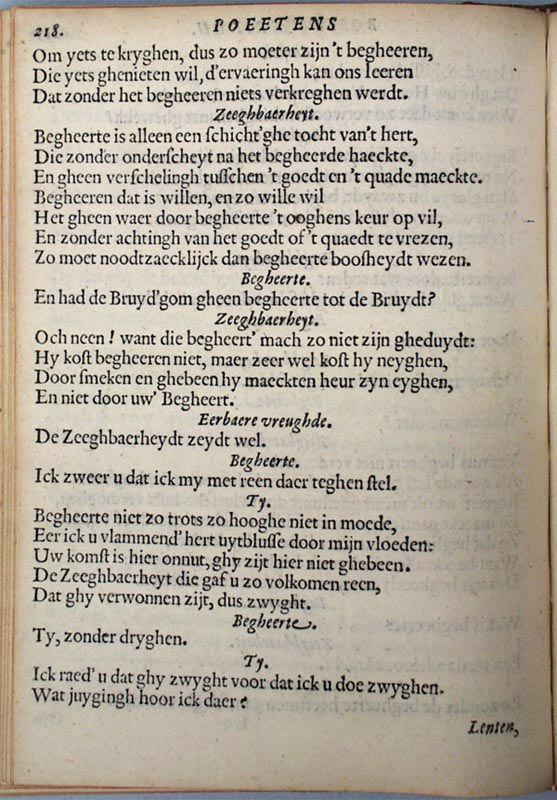 218. POEETENS
Om yets te kryghen, dus zo moeter zijn 't begheeren,
Die yets ghenieten wil, d'ervaeringh kan ons leeren
Dat zonder het begheeren niets verkreghen werdt.
Zeeghbaerheyt.
Begheerte is alleen een schicht'ghe tocht van't hert,
Die zonder onderscheyt na het begheerde haeckte,
En gheen verschelingh tusschen 't goedt en 't quade maeckte.
Begheeren dat is willen, en zo wille wil
Het gheen waer door begheerte 't ooghens keur op vil,
En zonder achtingh van het goedt of 't quaedt te vrezen,
Zo moet noodtzaecklijck dan begheerte boosheydt wezen.
Begheerte.
En had de Bruyd'gom gheen begheerte tot de Bruydt?
Zeeghbaerheyt.
Och neen! want die begheert' mach zo niet zijn gheduydt:
Hy kost begheeren niet, maer zeer wel kost hy neyghen,
Door smeken en ghebeen hy maeckten heur zyn eyghen,
En niet door uw' Begheert.
Eerbaere vreughde.
De Zeeghbaerheydt zeydt wel.
Begheerte.
Ick zweer u dat ick my met reen daer teghen stel.
Ty.
Begheerte niet zo trots zo hooghe niet in moede,
Eer ick u vlammend' hert uytblusse door mijn vloeden:
Uw komst is hier onnut, ghy zijt hier niet ghebeen.
De Zeeghbaerheyt die gaf u zo volkomen reen,
Dat ghy verwonnen zijt, dus zwyght.
Begheerte.
Ty, zonder dryghen.
Ty.
Ick raed' u dat ghy zwyght voor dat ick u doe zwyghen.
Wat juygingh hoor ick daer?
Lenten,